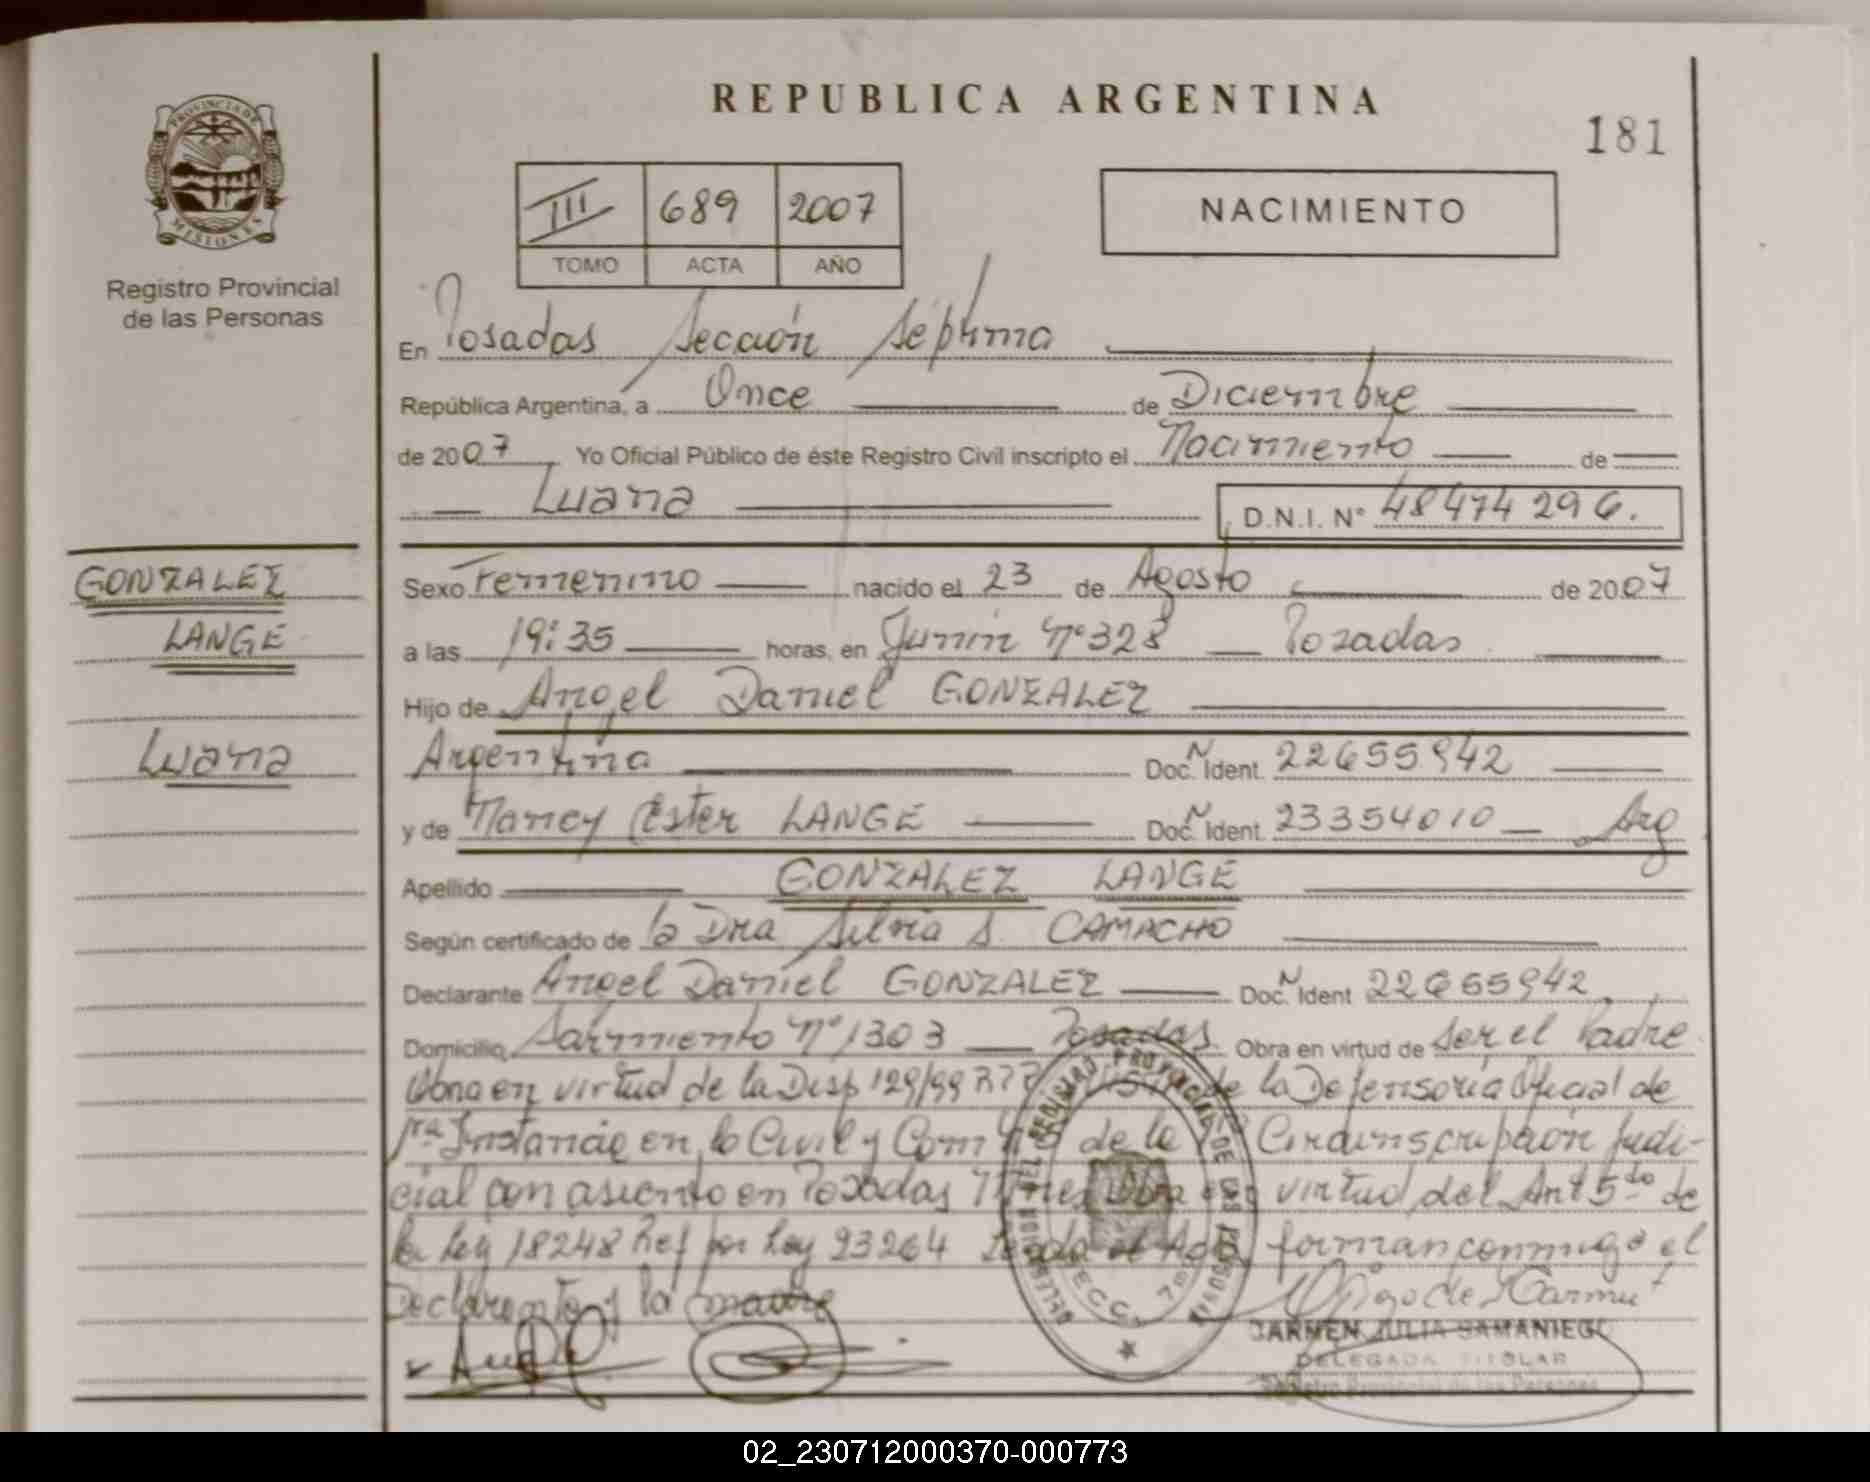 REPUBLICA ARGENTINA
181
PROVINCIA DE
MISIONES
Registro Provincial
de las Personas
III 689 2007
TOMO ACTA AÑO
NACIMIENTO
En Posadas Sección Séptima
República Argentina, a Once de Diciembre
de 2007 Yo Oficial Público de éste Registro Civil inscripto el Nacimiento de
Luana D.N.I. N° 48474296.
GONZALEZ
LANGE
Luana
Sexo Femenino nacido el 23 de Agosto de 2007
a las 19:35 horas, en Junin N° 328 Posadas
Hijo de Angel Daniel GONZALEZ
Argentina Doc. Ident. 22655942
y de Nancy Ester LANGE Doc. Ident. 23354010 Arg
Apellido GONZALEZ LANGE
Según certificado de la Dra Silvia S. CAMACHO
Declarante Angel Daniel GONZALEZ Doc. Ident 22655942
Domicilio Sarmiento N° 1303 Posadas Obra en virtud de ser el Padre
Obra en virtud de la Disp 129/99 de la Defensoria Oficial de
1ra Instancia en lo Civil y Com de la Circunscripción Judi-
cial con asiento en Posadas Mnes Obra en virtud del Art 5to de
la Ley 18248 Ref por Ley 23264 Leida el Acta forman conmigo el
Declarante y la madre
CARMEN JULIA SAMANIEGO
DELEGADA TITULAR
Registro Provincial de las Personas
02_230712000370-000773